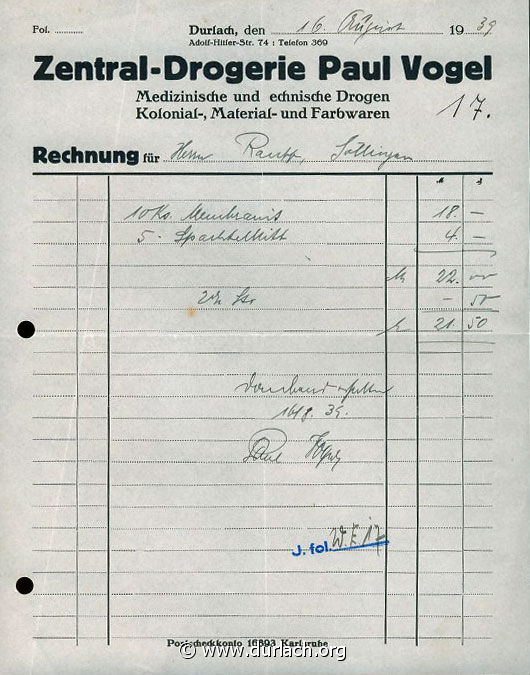 Fol. ........ Durlach, den 16. August 19 39
Adolf-Hitler-Str. 74 : Telefon 369
Zentral-Drogerie Paul Vogel
Medizinische und echnische Drogen
Kolonial-, Material- und Farbwaren
17.
Rechnung für Herrn Rauff, Söllingen
10 Kg. Membranit 18. —
5 - Spachtelkitt 4. —
M 22. 00
2% — 50
M 21. 50
Dankend erhalten
16/8. 39.
Paul Vogel
J. fol. W.E. 17
Postscheckkonto 16893 Karlsruhe
© www.durlach.org